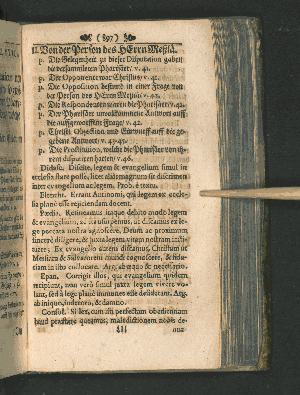 (897)
II. Von der Person des HErrn Messiä.
p. Die Gelegenheit zu dieser Disputation gaben
die versammleten Pharisäer/ v. 41.
p. Der Opponent war Christus/ v. 42.
p. Die Opposition bestund in einer Frage von
der Person des HErrn Messiä/ v. 42.
p. Die Respondenten waren die Pharisäer/ v. 42.
p. Der Pharisäer unvollkommene Antwort auff
die auffgeworffene Frage/ v. 42.
p. Christi Objection und Einwurff auff die ge-
gebene Antwort/ v. 43-45.
p. Die Prostitution, welche die Pharisäer von ih-
rem disputiren hatten/ v. 46.
Didasc. Disceite, legem & evangelium simul in
ecclesia stare posse, licet alias magnum sit discrimen
inter evangelium ac legem. Prob. è textu.
Elencht. Errant Antinomi, qui legem ex eccle-
sia planè esse rejiciendam docent.
Pædia. Retineamus itaque debito modo legem
& evangelium, ac ita usurpemus, ut discamus ex le-
ge peccata nostra agnoscere, Deum ac proximum
sincerè diligere, & juxta legem vitam nostram insti-
tuere; Ex evangelio autem discamus, Christum ut
Messiam & Salvatorem mundi cognoscere, & fidu-
tiam in illo collocare. Arg. ab æquo & necessario.
Epan. Corrigit illos, qui evangelium quidem
recipiunt, non verò simul juxta legem vivere vo-
lunt, sed à lege planè immunes esse desiderant. Arg.
ab iniquo, indecoro, & damno.
Consol. Si lex, cum illi perfectam obedientiam
haud præstare queamus, maledictionem nobis de-
Lll
nun-